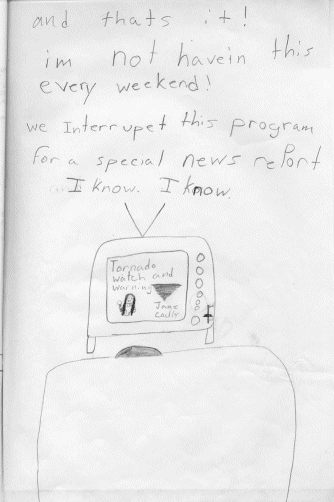 and thats it!
im not havein this
every weekend!
we Interrupet this program
for a special news report
I know. I know.
Tornado
watch and
warning
Jane